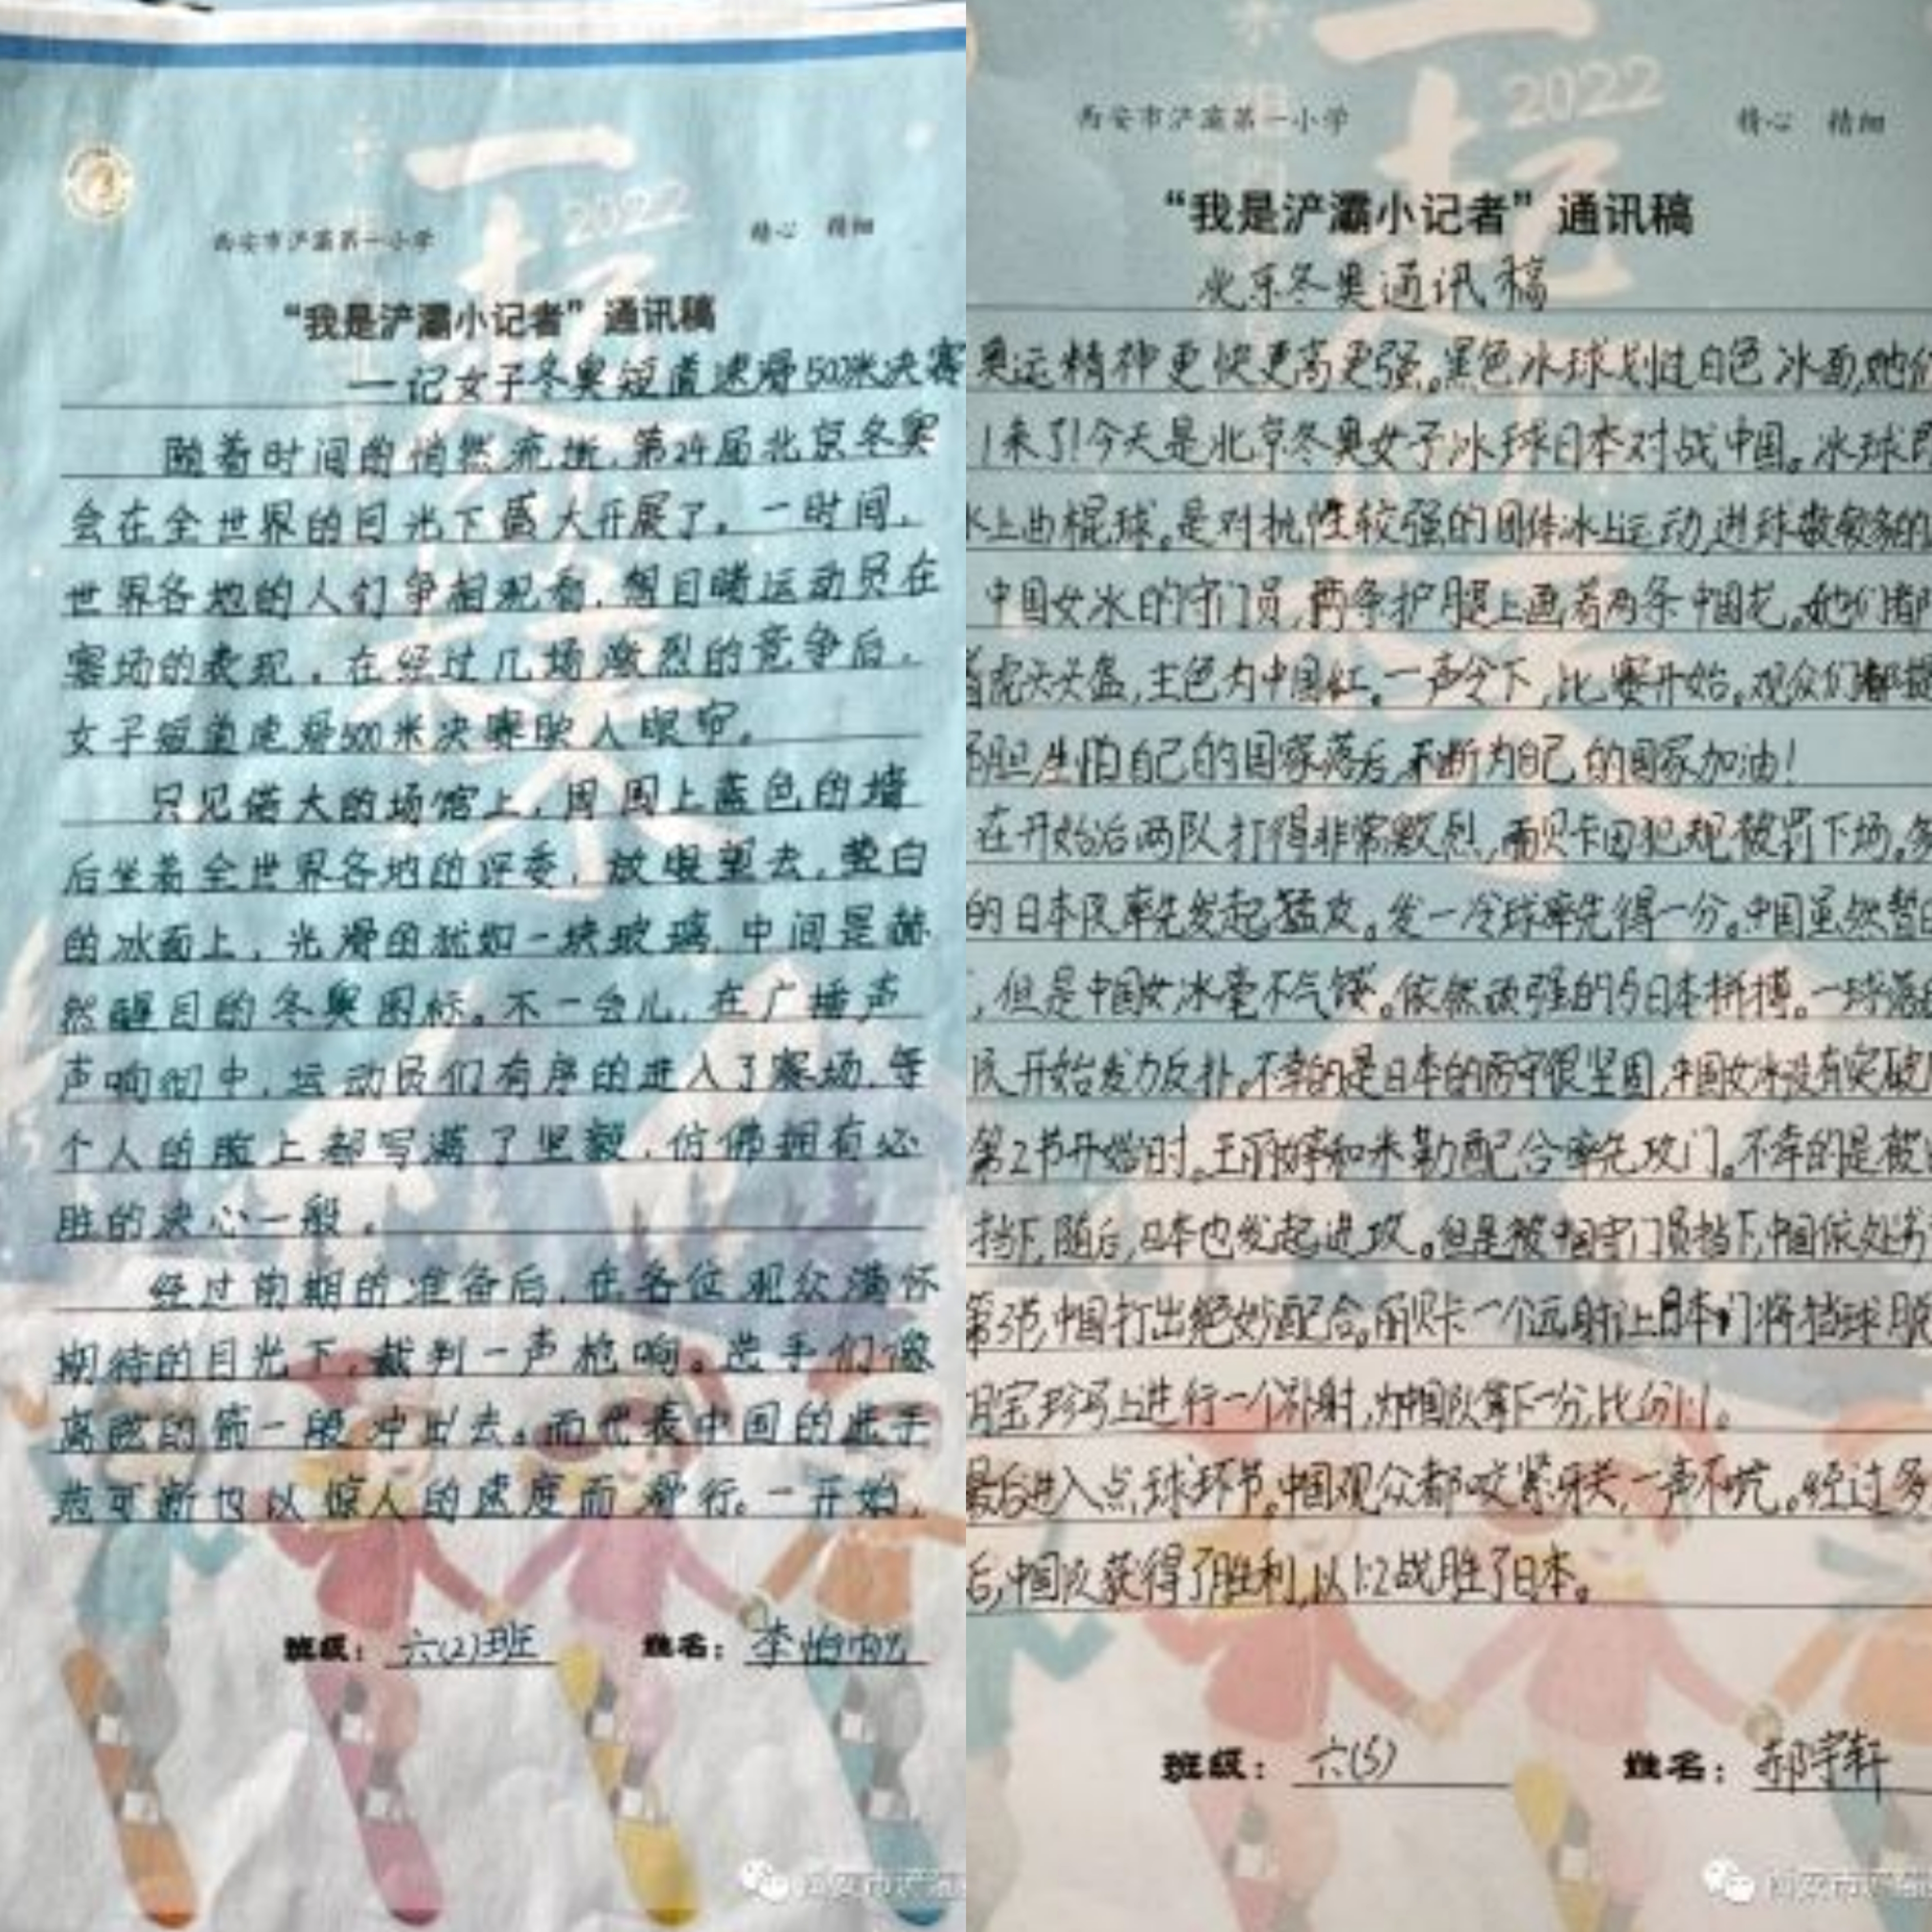 一起
2022
西安市浐灞第一小学
精心 精细
“我是浐灞小记者”通讯稿
——记女子冬奥短道速滑500米决赛
随着时间的悄然流逝,第24届北京冬奥
会在全世界的目光下盛大开展了。一时间,
世界各地的人们争相观看,想目睹运动员在
赛场的表现,在经过几场激烈的竞争后,
女子短道速滑500米决赛映人眼帘。
只见偌大的场馆上,周围上蓝色的墙
后坐着全世界各地的评委,放眼望去,莹白
的冰面上,光滑的犹如一块玻璃,中间是赫
然醒目的冬奥图标。不一会儿,在广播声
声响彻中,运动员们有序的进入了赛场,每
个人的脸上都写满了坚毅,仿佛拥有必
胜的决心一般。
经过前期的准备后,在各位观众满怀
期待的目光下,裁判一声枪响。选手们像
离弦的箭一般冲出去。而代表中国的选手
范可新也以惊人的速度而滑行。一开始,
班级: 六(2)班 姓名: 李怡
一起
2022
西安市浐灞第一小学
精心 精细
“我是浐灞小记者”通讯稿
北京冬奥通讯稿
奥运精神更快更高更强。黑色冰球划过白色冰面,她们
来了!今天是北京冬奥女子冰球日本对战中国。冰球即
冰上曲棍球。是对抗性较强的团体冰上运动,进球数较多的
中国女冰的守门员,两条护腿上画着两条中国龙。她们
着虎头头盔,主色为中国红。一声令下,比赛开始。观众们都
胆,生怕自己的国家落后,不断为自己的国家加油!
在开始后两队打得非常激烈,而贝卡因犯规被罚下场。
的日本队率先发起猛攻。发一冷球率先得一分。中国虽然暂
,但是中国女冰毫不气馁。依然顽强的与日本拼搏。一球落
队开始发力反扑。不幸的是日本的防守很坚固,中国女冰没有突破
第2节开始时。王丽婷和米勒配合率先攻门。不幸的是被
挡下,随后,日本也发起进攻。但是被中国守门员挡下,中国依处劣
第3节,中国打出绝妙配合。丽贝卡一个远射让日本门将挡球脱
胡宝珍马上进行一个补射,为中国队拿下一分,比分1:1。
最后进入点球环节。中国观众都咬紧牙关,一声不吭。经过多
后,中国队获得了胜利,以1:2战胜了日本。
班级: 六(5) 姓名: 郝宇轩